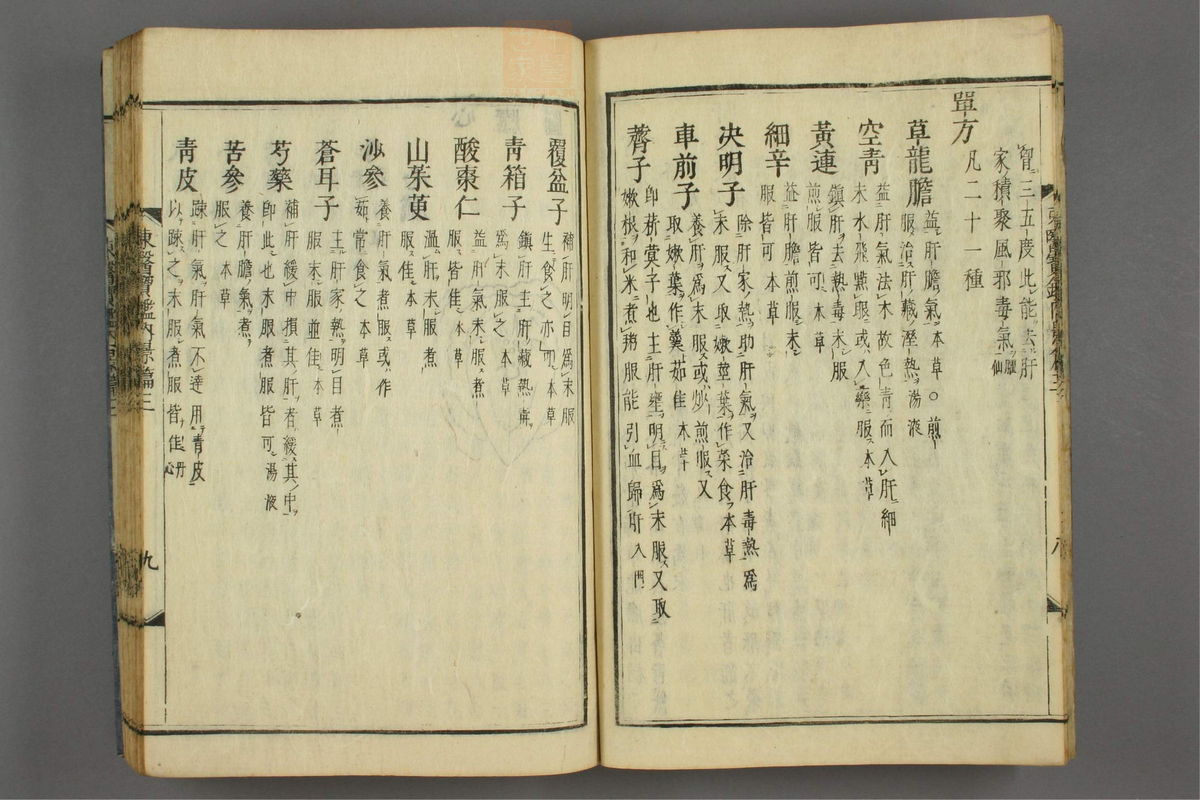 胷三五度此能去肝
家積聚風邪毒氣臞仙
單方
凡二十一種
草龍膽
益肝膽氣本草○煎
服治肝藏溼熱湯液
空青
益肝氣法木故色青而入肝細
末水飛點服或入藥服本草
黃連
鎮肝去熱毒末服
煎服皆可本草
細辛
益肝膽煎服末
服皆可本草
决明子
除肝家熱助肝氣又治肝毒熱爲
末服又取嫩莖葉作菜食本草
車前子
養肝爲末服或炒煎服又
取嫩葉作羹茹佳本草
薺子
卽菥蓂子也主肝壅明目爲末服又取
嫩根和米煮粥服能引血歸肝入門
覆盆子
補肝明目爲末服
生食之亦可本草
青箱子
鎮肝主肝藏熱
爲末服之本草
酸棗仁
益肝氣末服煮
服皆佳本草
山茱萸
溫肝點服煮
服佳本草
沙參
養肝氣煮服或作
茹常食之本草
蒼耳子
主肝家熱明目煮
服末服並佳本草
芍藥
補肝緩中損其肝者緩其中
卽此也末服煮服皆可湯液
苦參
養肝膽氣煮
服之本草
青皮
踈肝氣肝氣不達用青皮
以踈之末服煮服皆佳丹心
東醫寶鑑內景篇三
九